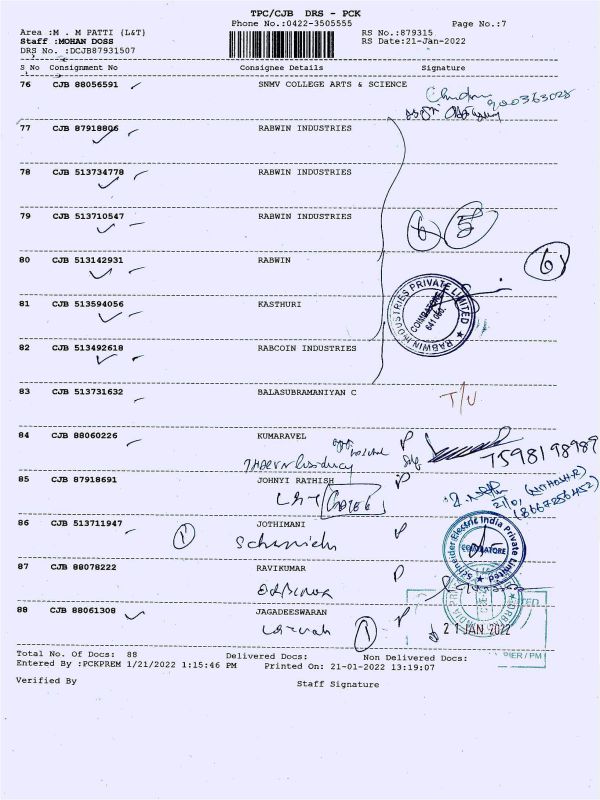 TPC/CJB DRS - PCK
Phone No.:0422-3505555 Page No.:7
Area :M . M PATTI (L&T) RS No.:879315
Staff :MOHAN DOSS RS Date:21-Jan-2022
DRS No. :DCJB87931507
S No Consignment No Consignee Details Signature
76 CJB 88056591 SNMV COLLEGE ARTS & SCIENCE
77 CJB 87918806 RABWIN INDUSTRIES
78 CJB 513734778 RABWIN INDUSTRIES
79 CJB 513710547 RABWIN INDUSTRIES
6 5
80 CJB 513142931 RABWIN
6
81 CJB 513594056 KASTHURI
RABWIN INDUSTRIES PRIVATE LIMITED
COIMBATORE
82 CJB 513492618 RABCOIN INDUSTRIES
83 CJB 513731632 BALASUBRAMANIYAN C
T/U
84 CJB 88060226 KUMARAVEL
7598198989
85 CJB 87918691 JOHNYI RATHISH
86 CJB 513711947 JOTHIMANI
1
Schneider Electric India Private Limited
COIMBATORE
87 CJB 88078222 RAVIKUMAR
88 CJB 88061308 JAGADEESWARAN
1
21 JAN 2022
Total No. Of Docs: 88 Delivered Docs: Non Delivered Docs:
Entered By :PCKPREM 1/21/2022 1:15:46 PM Printed On: 21-01-2022 13:19:07
Verified By Staff Signature